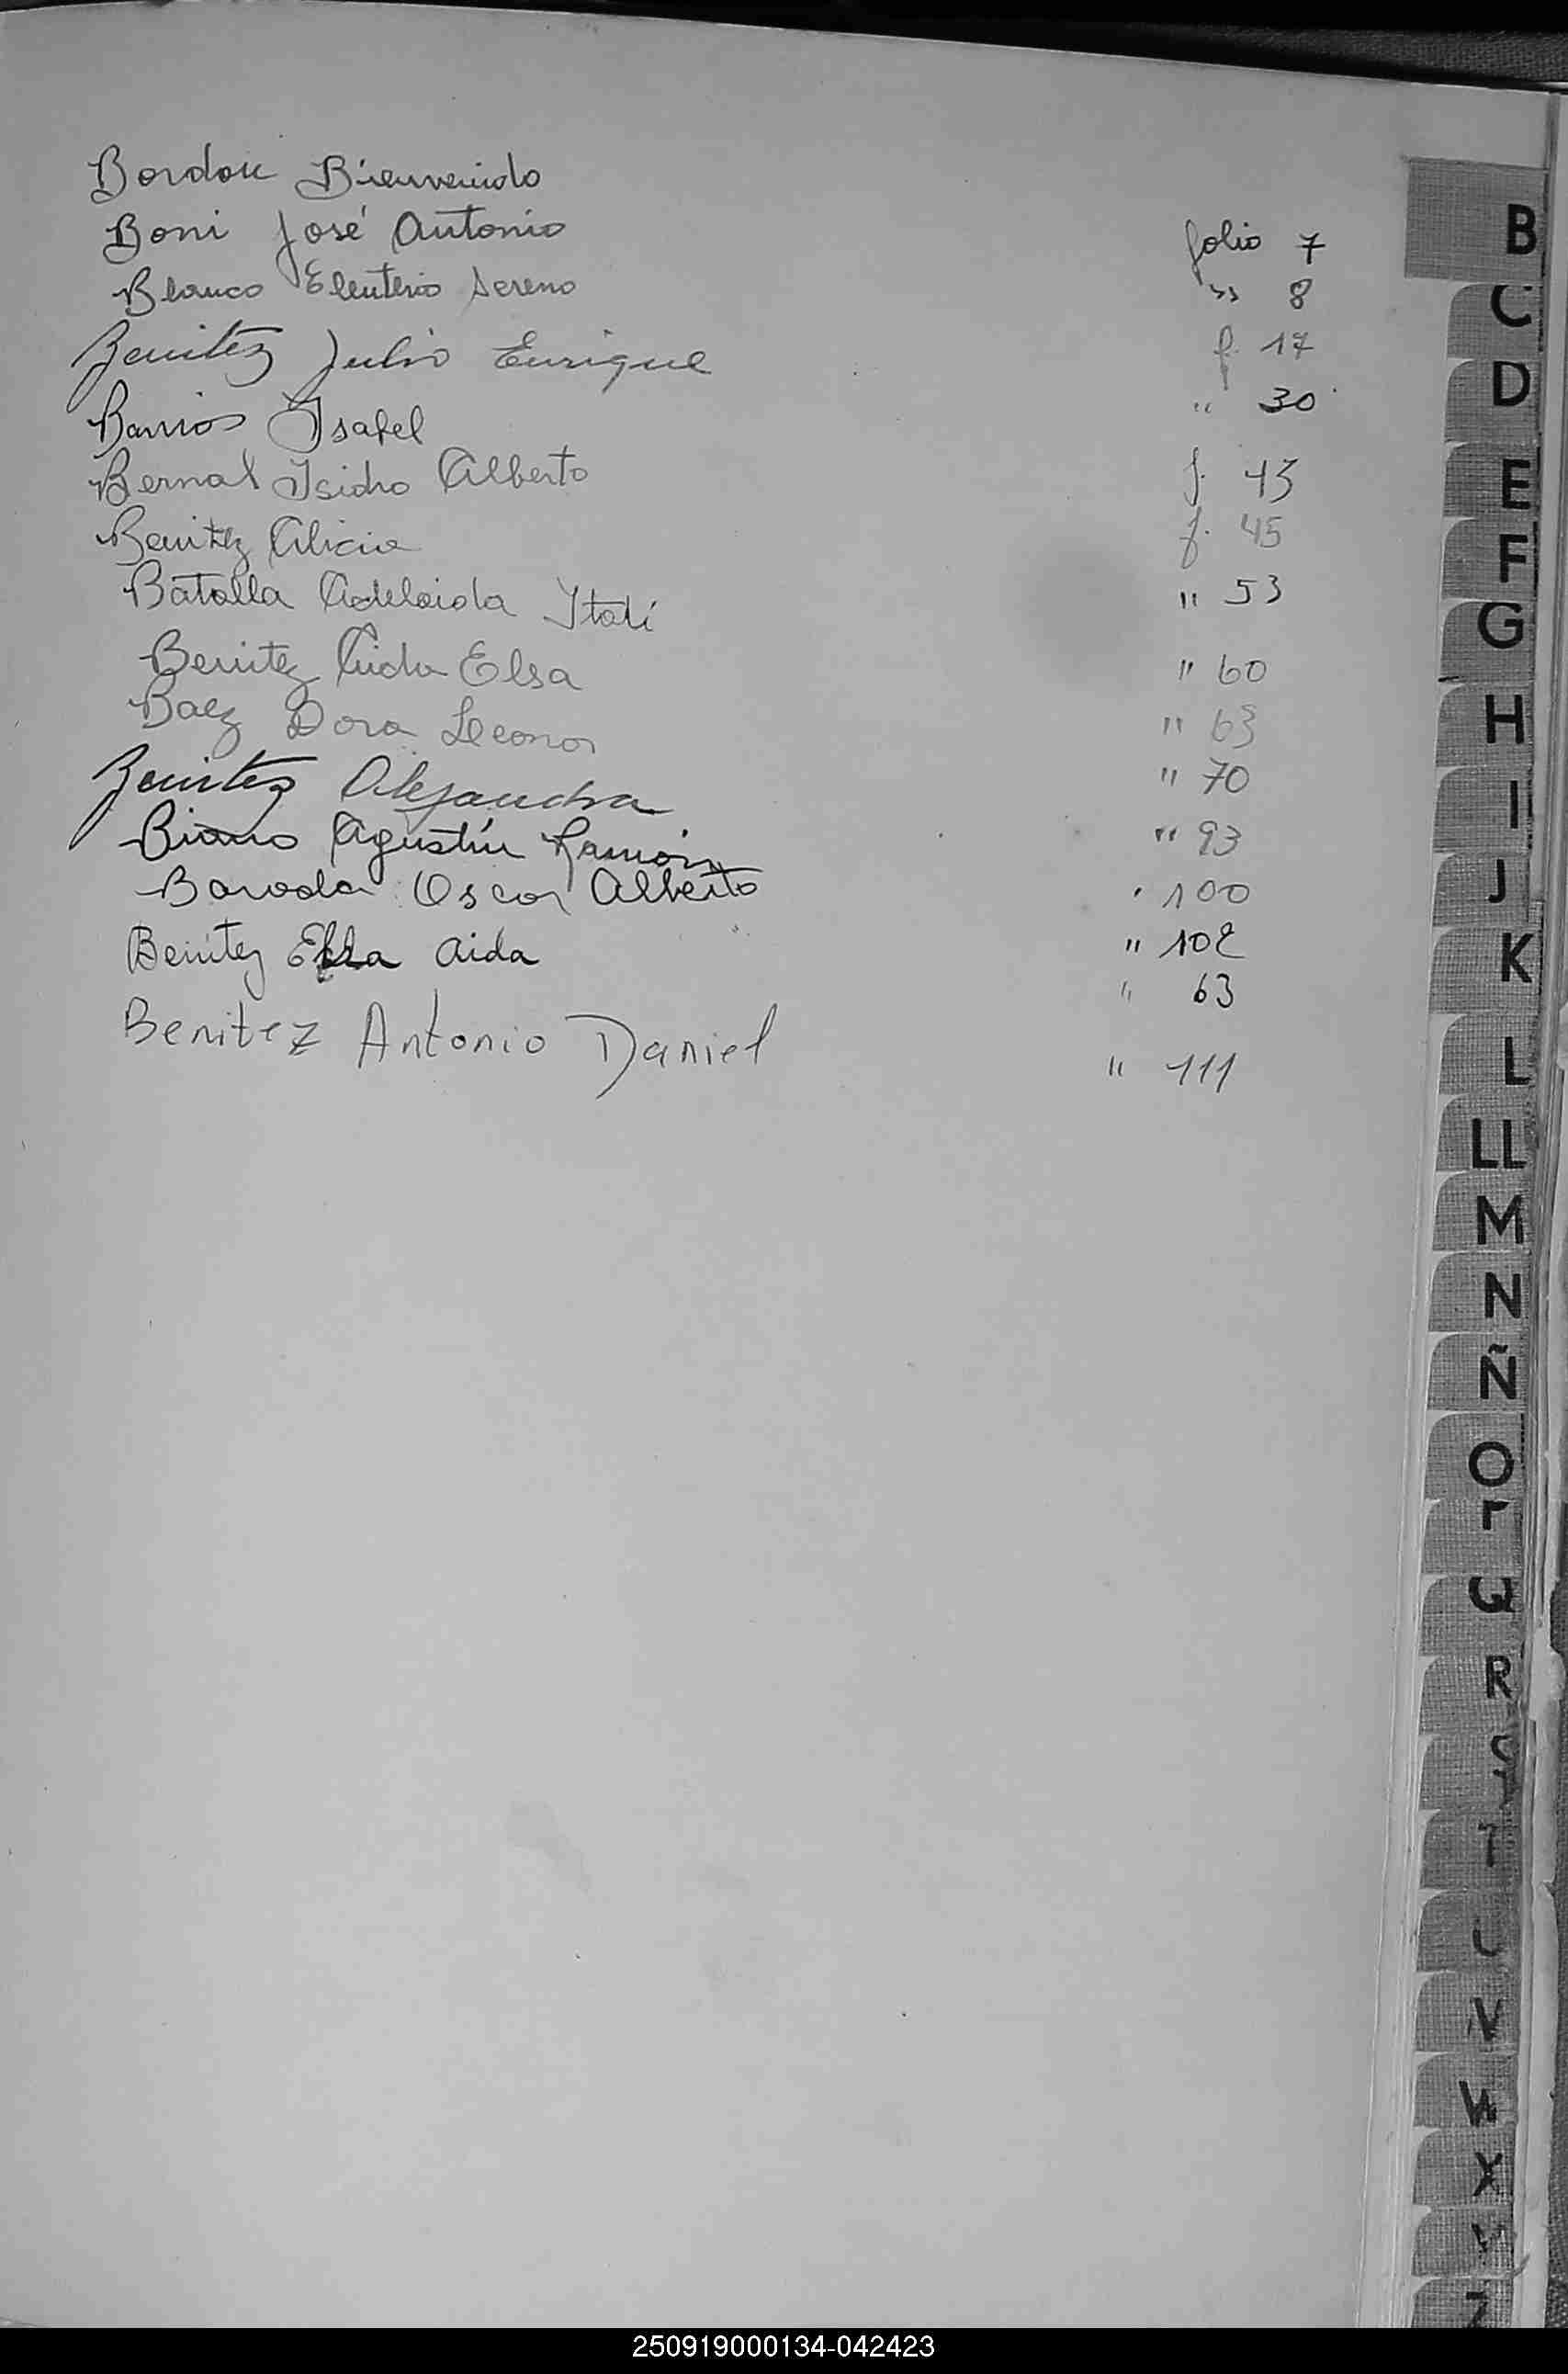 Bordon Bienvenido folio 7
Boni José Antonio '' 8
Blanco Eleuterio Sereno f. 17
Benitez Julio Enrique " 30
Barrios Isabel f. 43
Bernal Isidro Alberto f. 45
Benitez Alicia " 53
Batalla Adelaida Itatí " 60
Benitez Aida Elsa " 63
Baez Dora Leonor " 70
Benitez Alejandra " 93
Agustín Ramón 100
Oscar Alberto " 102
Benitez Elsa Aida " 63
Benitez Antonio Daniel " 111
B
C
D
E
F
G
H
I
J
K
L
LL
M
N
Ñ
O
P
Q
R
S
T
U
V
W
X
Y
Z
250919000134-042423